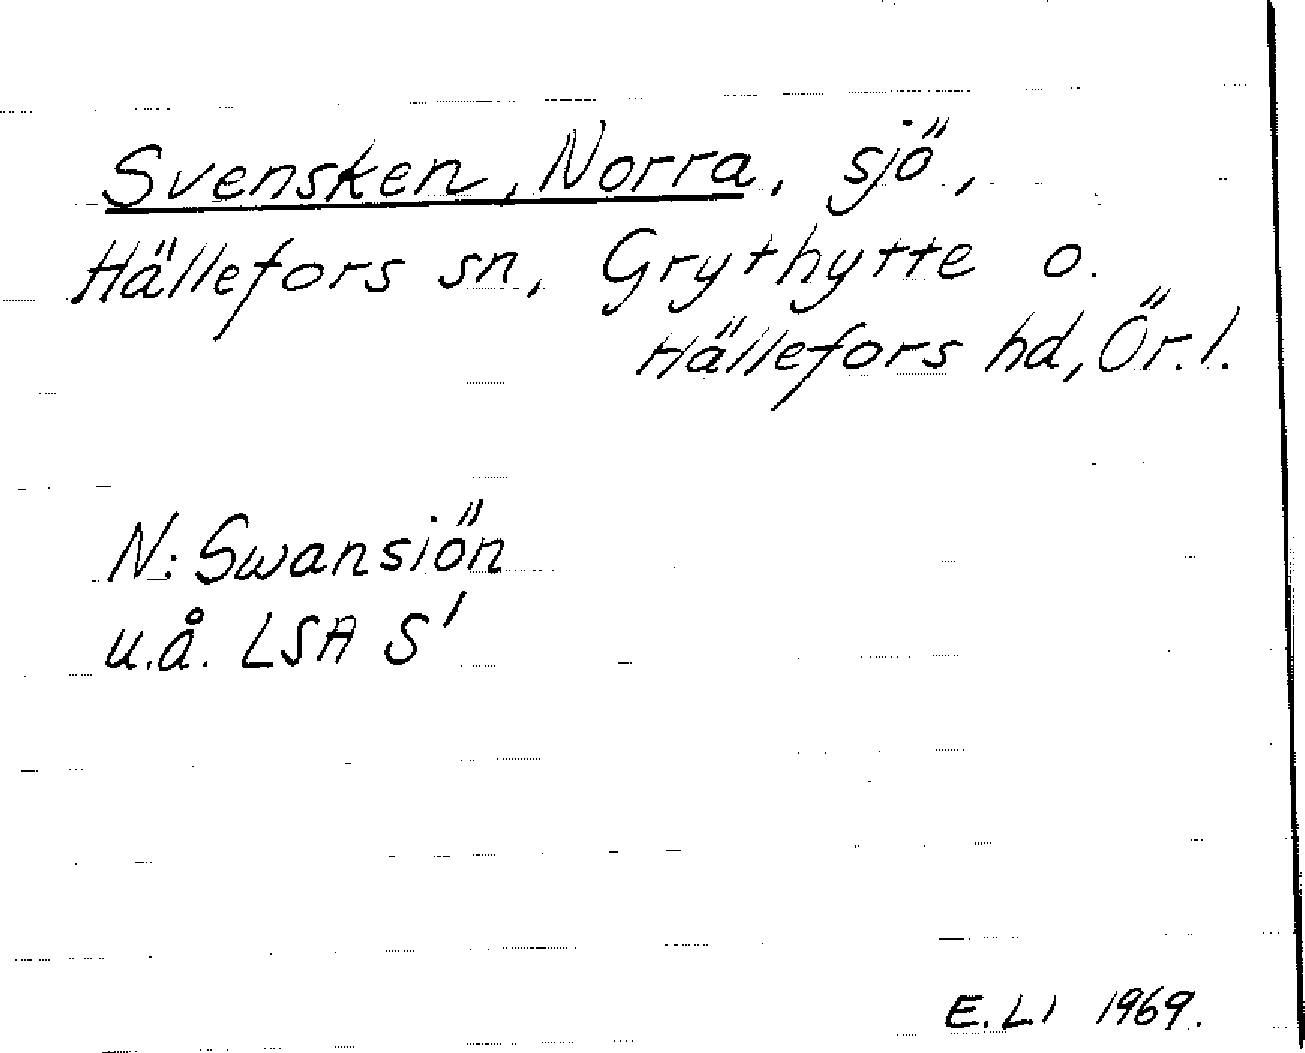 Svensken, Norra, sjö,
Hällefors sn, Grythytte o.
Hällefors hd, Ör. l.
N: Swansiön
u.å. LSA S'
E. Li 1969.